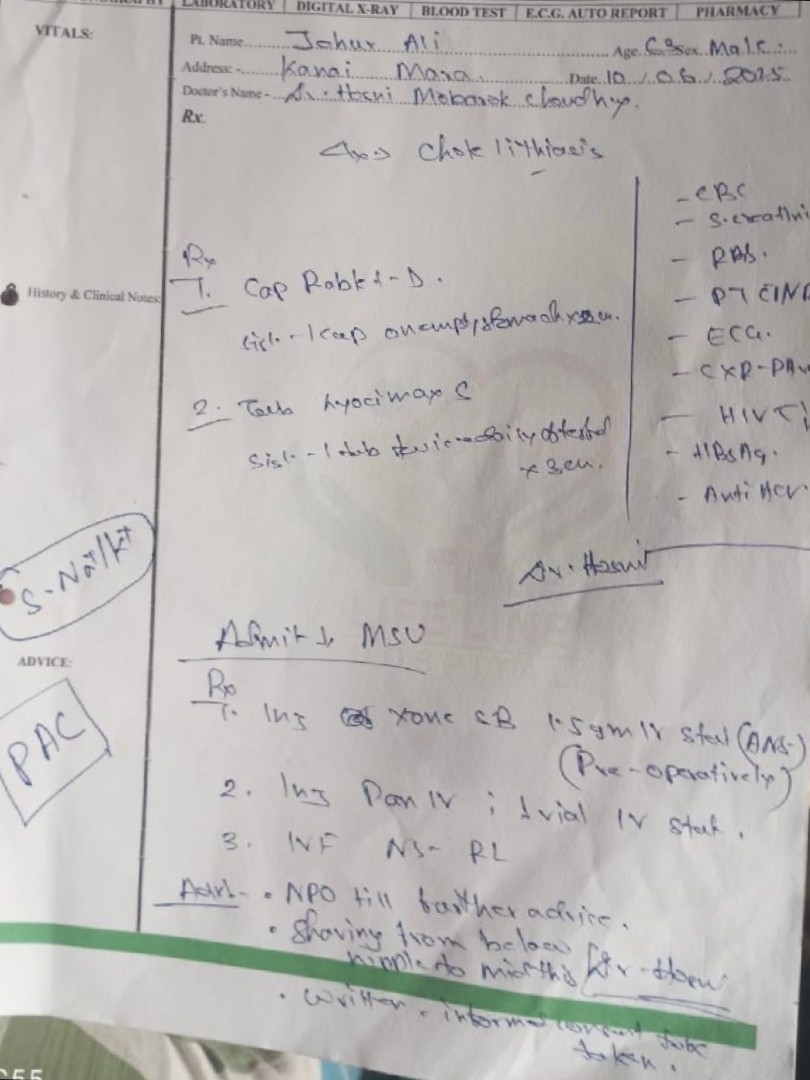 LABORATORY | DIGITAL X-RAY | BLOOD TEST | E.C.G. AUTO REPORT | PHARMACY
VITALS:
Pt. Name Johur Ali Age. Sex Male
Address:- Kanai Mara Date. 10/06/2025
Doctor's Name - Dr. Hosni Mobarok Choudhy.
Rx.
Chole lithiasis
- CBC
- S. creatini
- RBS.
- PT (IN
- ECG.
- CXR-PAv
- HIV
- HBsAg.
- Anti HCV.
Rx
1. Cap Rabkit-D.
Sig:- 1 cap on empty stomach x
2. Tab hyocimax S
Sig:- 1 tab twice daily
x 3
Dr. Hosni
History & Clinical Notes:
S-Na+/K+
ADVICE:
PAC
Admit MSU
Rx
1. Inj xone SB 1.5gm IV stat (ANS)
(Pre-operatively)
2. Inj Pan IV ; 1 vial IV stat.
3. IVF NS- RL
Adv:- • NPO till further advice.
• Shaving from below
nipple to midthi Dr. Hosni
• written informed consent to be
taken.